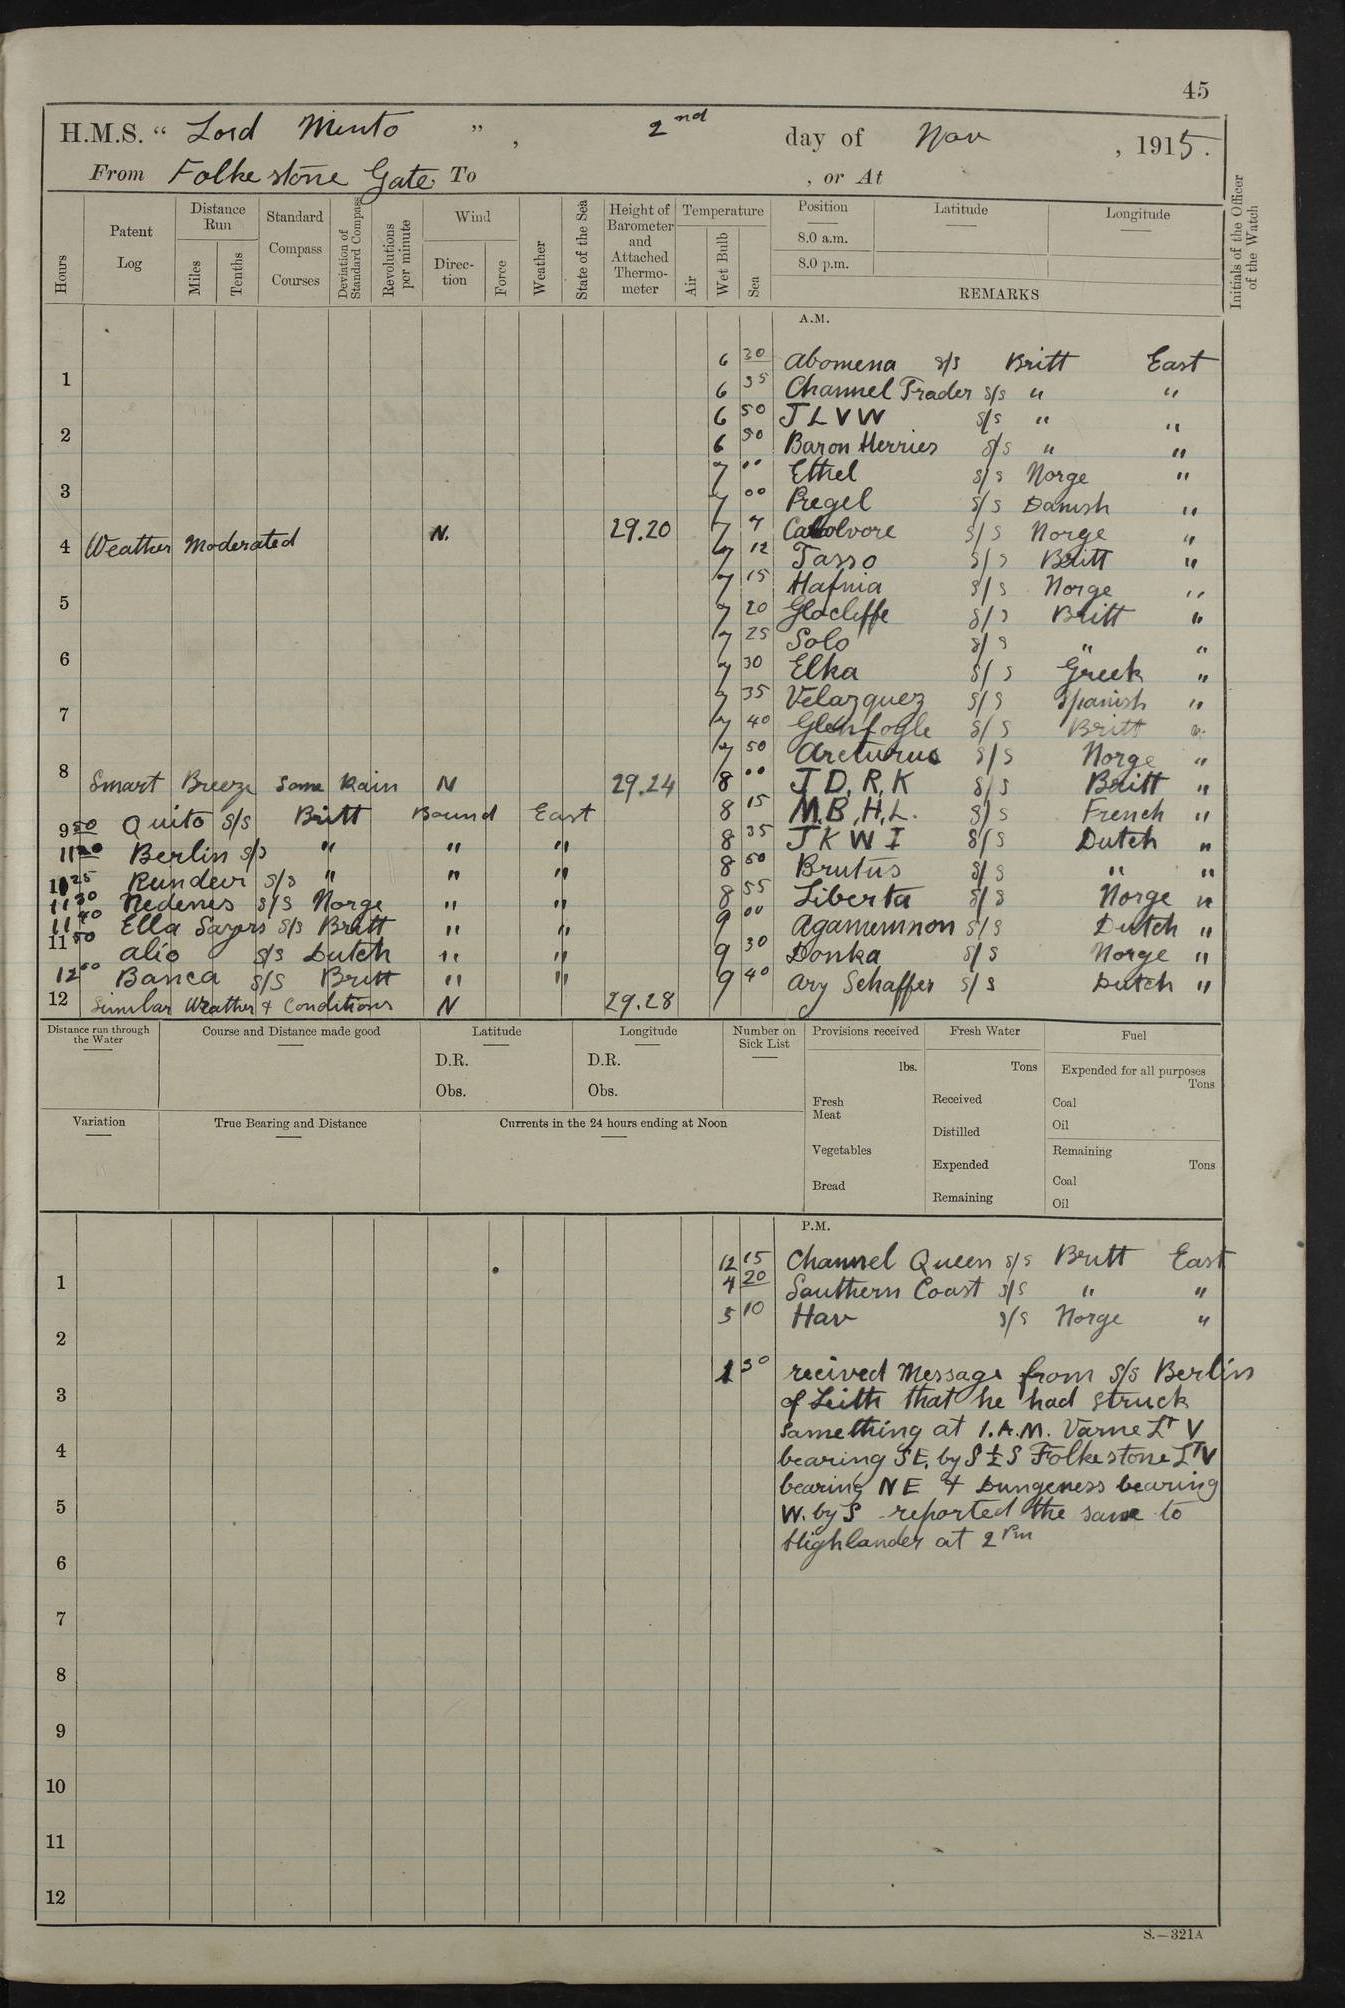 45
H.M.S. " Lord Minto ", 2nd day of Nov , 1915.
From Folkestone Gate To , or At
Hours
Patent Log
Distance Run
Miles
Tenths
Standard Compass Courses
Deviation of Standard Compass
Revolutions per minute
Wind
Direc-tion
Force
Weather
State of the Sea
Height of Barometer and Attached Thermo-meter
Temperature
Air
Wet Bulb
Sea
Position
8.0 a.m.
8.0 p.m.
Latitude
Longitude
REMARKS
Initials of the Officer of the Watch
A.M.
6 30 Abomena s/s Britt East
1
6 35 Channel Trader s/s " "
6 50 J L V W s/s " "
2
6 50 Baron Herries s/s " "
7 00 Ethel s/s Norge "
3
7 00 Pregel s/s Danish "
4 Weather Moderated N. 29.20 7 7 s/s Norge "
7 12 Tasso s/s Britt "
7 15 Hafnia s/s Norge "
5
7 20 Glocliffe s/s Britt "
7 25 Solo s/s " "
6
7 30 Elka s/s Greek "
7 35 Velazquez s/s Spanish "
7
7 40 Glenfogle s/s Britt "
7 50 Arcturus s/s Norge "
8 Smart Breeze Some Rain N 29.24 8 00 J D, R, K s/s Britt "
9 50 Quito s/s Britt Bound East 8 15 M.B,H,L. s/s French "
11 20 Berlin s/s " " " 8 35 J K W I s/s Dutch "
25 Rundevi s/s " " " 8 50 Brutus s/s " "
11 30 Nedenes s/s Norge " " 8 55 Liberta s/s Norge "
11 40 Ella Sayers s/s Britt " " 9 00 Agamemnon s/s Dutch "
11 50 Alio s/s Dutch " " 9 30 Donka s/s Norge "
12 00 Banca s/s Britt " " 9 40 Ary Schaffer s/s Dutch "
12 Similar Weather & Conditions N 29.28
Distance run through the Water
Course and Distance made good
Latitude
D.R.
Obs.
Longitude
D.R.
Obs.
Number on Sick List
Provisions received
lbs.
Fresh Meat
Vegetables
Bread
Fresh Water
Tons
Received
Distilled
Expended
Remaining
Fuel
Expended for all purposes
Tons
Coal
Oil
Remaining
Tons
Coal
Oil
Variation
True Bearing and Distance
Currents in the 24 hours ending at Noon
P.M.
12 15 Channel Queen s/s Britt East
1
4 20 Southern Coast s/s " "
5 10 Hav s/s Norge "
2
1 30 recived Message from s/s Berlin
3
of Leith that he had struck
something at 1.A.M. Varne Lt V
4
bearing SE, by S ½ S Folkestone Lt V
bearing NE & Dungeness bearing
5
W. by S reported the same to
Highlander at 2 Pm
6
7
8
9
10
11
12
S.—321A